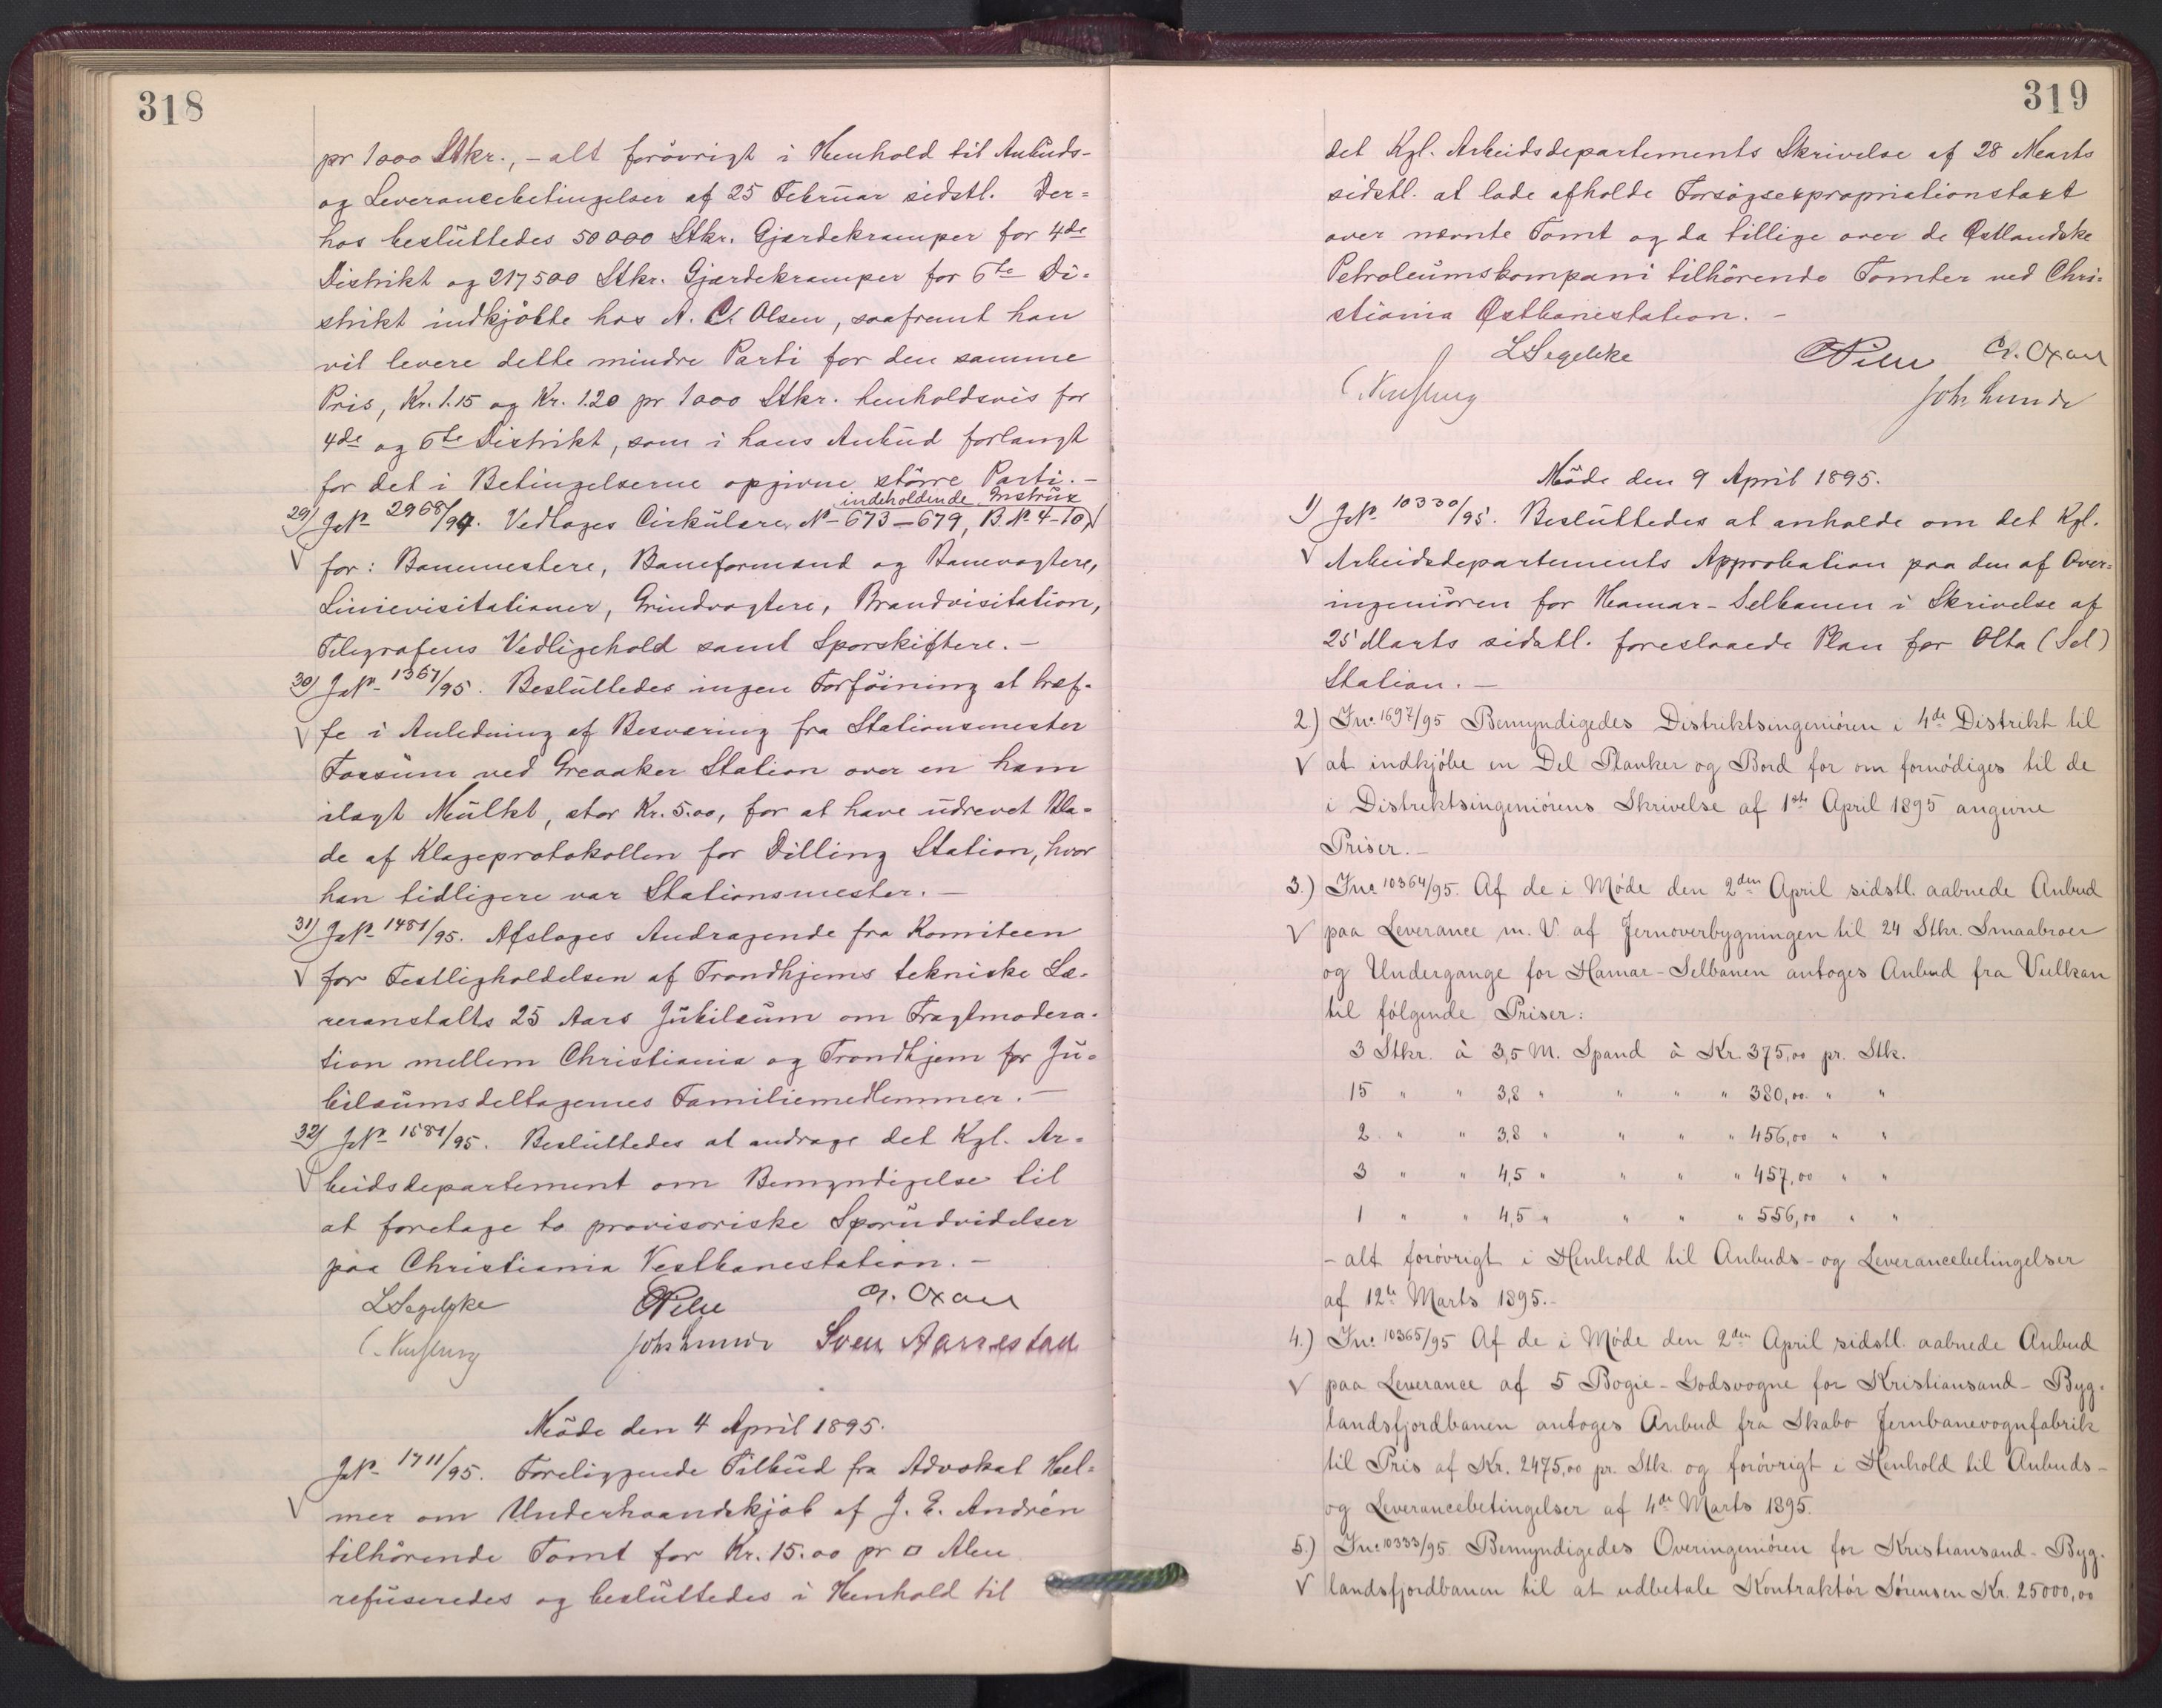 318
pr 1000 Stkr., - alt forövrigt i Henhold til Anbuds-
og Leverancebetingelser af 25 Februar sidstl. Der=
hos besluttedes 50000 Stkr. Gjærdekramper for 4de
Distrikt og 217500 Stkr. Gjærdekramper for 6te Di=
strikt indkjöbte hos A. C. Olsen, saafremt han
vil levere dette mindre Parti for den samme
Pris, Kr. 1.15 og Kr. 1.20 pr 1000 Stkr. henholdsvis for
4de og 6te Distrikt, som i hans Anbud forlangt
for det i Betingelserne opgivne större Parti. -
indeholdende Instrux
29) JN° 2968/94. Vedtoges Cirkulære N° 673-679, B.N° 4-10,
for: Banemestere, Baneformænd og Banevogtere,
Linievisitationer, Grindvogtere, Brandvisitation,
Telegrafens Vedligehold samt Sporskiftere. -
30) JN° 1367/95. Besluttedes ingen Forföining at træf-
fe i Anledning af Besværing fra Stationsmester
Fossum ved Greaaker Station over en ham
ilagt Mulkt, stor Kr. 5.00, for at have udrevet Bla-
de af Klageprotokollen for Dilling Station, hvor
han tidligere var Stationsmester. -
31) JN° 1481/95. Afsloges Andragende fra Komiteen
for Festligholdelsen af Trondhjems tekniske Læ-
reranstalts 25 Aars Jubilæum om Fragtmodera-
tion mellem Christiania og Trondhjem for Ju-
bilæumsdeltagernes Familiemedlemmer. -
32) JN° 1581/95. Besluttedes at andrage det Kgl. Ar=
beidsdepartement om Bemyndigelse til
at foretage to provisoriske Sporudvidelser
paa Christiania Vestbanestation. -
LSegelcke
Joh Lunde Sven Aarrestad
Möde den 4 April 1895.
JN° 1711/95. Foreliggende Tilbud fra Advokat Hel=
mer om Underhaandskjöb af J. E. Andrén
tilhörende Tomt for Kr. 15.00 pr □ Alen
refuseredes og besluttedes i Henhold til
319
det Kgl. Arbeidsdepartements Skrivelse af 28 Marts
sidstl. at lade afholde Forsögsexpropriationstaxt
over nævnte Tomt og da tillige over de Østlandske
Petroleumskompani tilhörende Tomter ved Chri=
stiania Østbanestation. -
LSegelcke
Joh Lunde
Möde den 9 April 1895.
1) JN° 10330/95. Besluttedes at anholde om det Kgl.
Arbeidsdepartements Approbation paa den af Over=
ingeniören for Hamar-Selbanen i Skrivelse af
25 Marts sidstl. foreslaaede Plan for Otta (Sel)
Station. -
2.) Jn°. 1697/95 Bemyndigedes Distriktsingeniören i 4de Distrikt til
at indkjöbe en Del Planker og Bord for om fornödiges til de
i Distriktsingeniörens Skrivelse af 1ste April 1895 angivne
Priser. -
3.) Jn°. 10364/95. Af de i Möde den 2den April sidstl. aabnede Anbud
paa Leverance m. V. af Jernoverbygningen til 24 Stkr. Smaabroer
og Undergange for Hamar-Selbanen antoges Anbud fra Vulkan
til fölgende Priser:
3 Stkr. à 3,5 M. Spand à Kr. 375,00 pr. Stk.
15 " " 3,8 " " " " 380,00 " "
2 " " 3,8 " " " " 456,00 " "
3 " " 4,5 " " " " 457,00 " "
1 " " 4,5 " " " " 556,00 " "
- alt forövrigt i Henhold til Anbuds- og Leverancebetingelser
af 12te Marts 1895. -
4.) Jn°. 10365/95 Af de i Möde den 2den April sidstl. aabnede Anbud
paa Leverance af 5 Bogie-Godsvogne for Kristiansand-Byg-
landsfjordbanen antoges Anbud fra Skabo Jernbanevognfabrik
til Pris af Kr. 2475,00 pr. Stk. og forövrigt i Henhold til Anbuds-
og Leverancebetingelser af 4de Marts 1895.
5.) Jn°. 10333/95 Bemyndigedes Overingeniören for Kristiansand-Byg-
landsfjordbanen til at udbetale Kontraktör Sörensen Kr. 25000,00